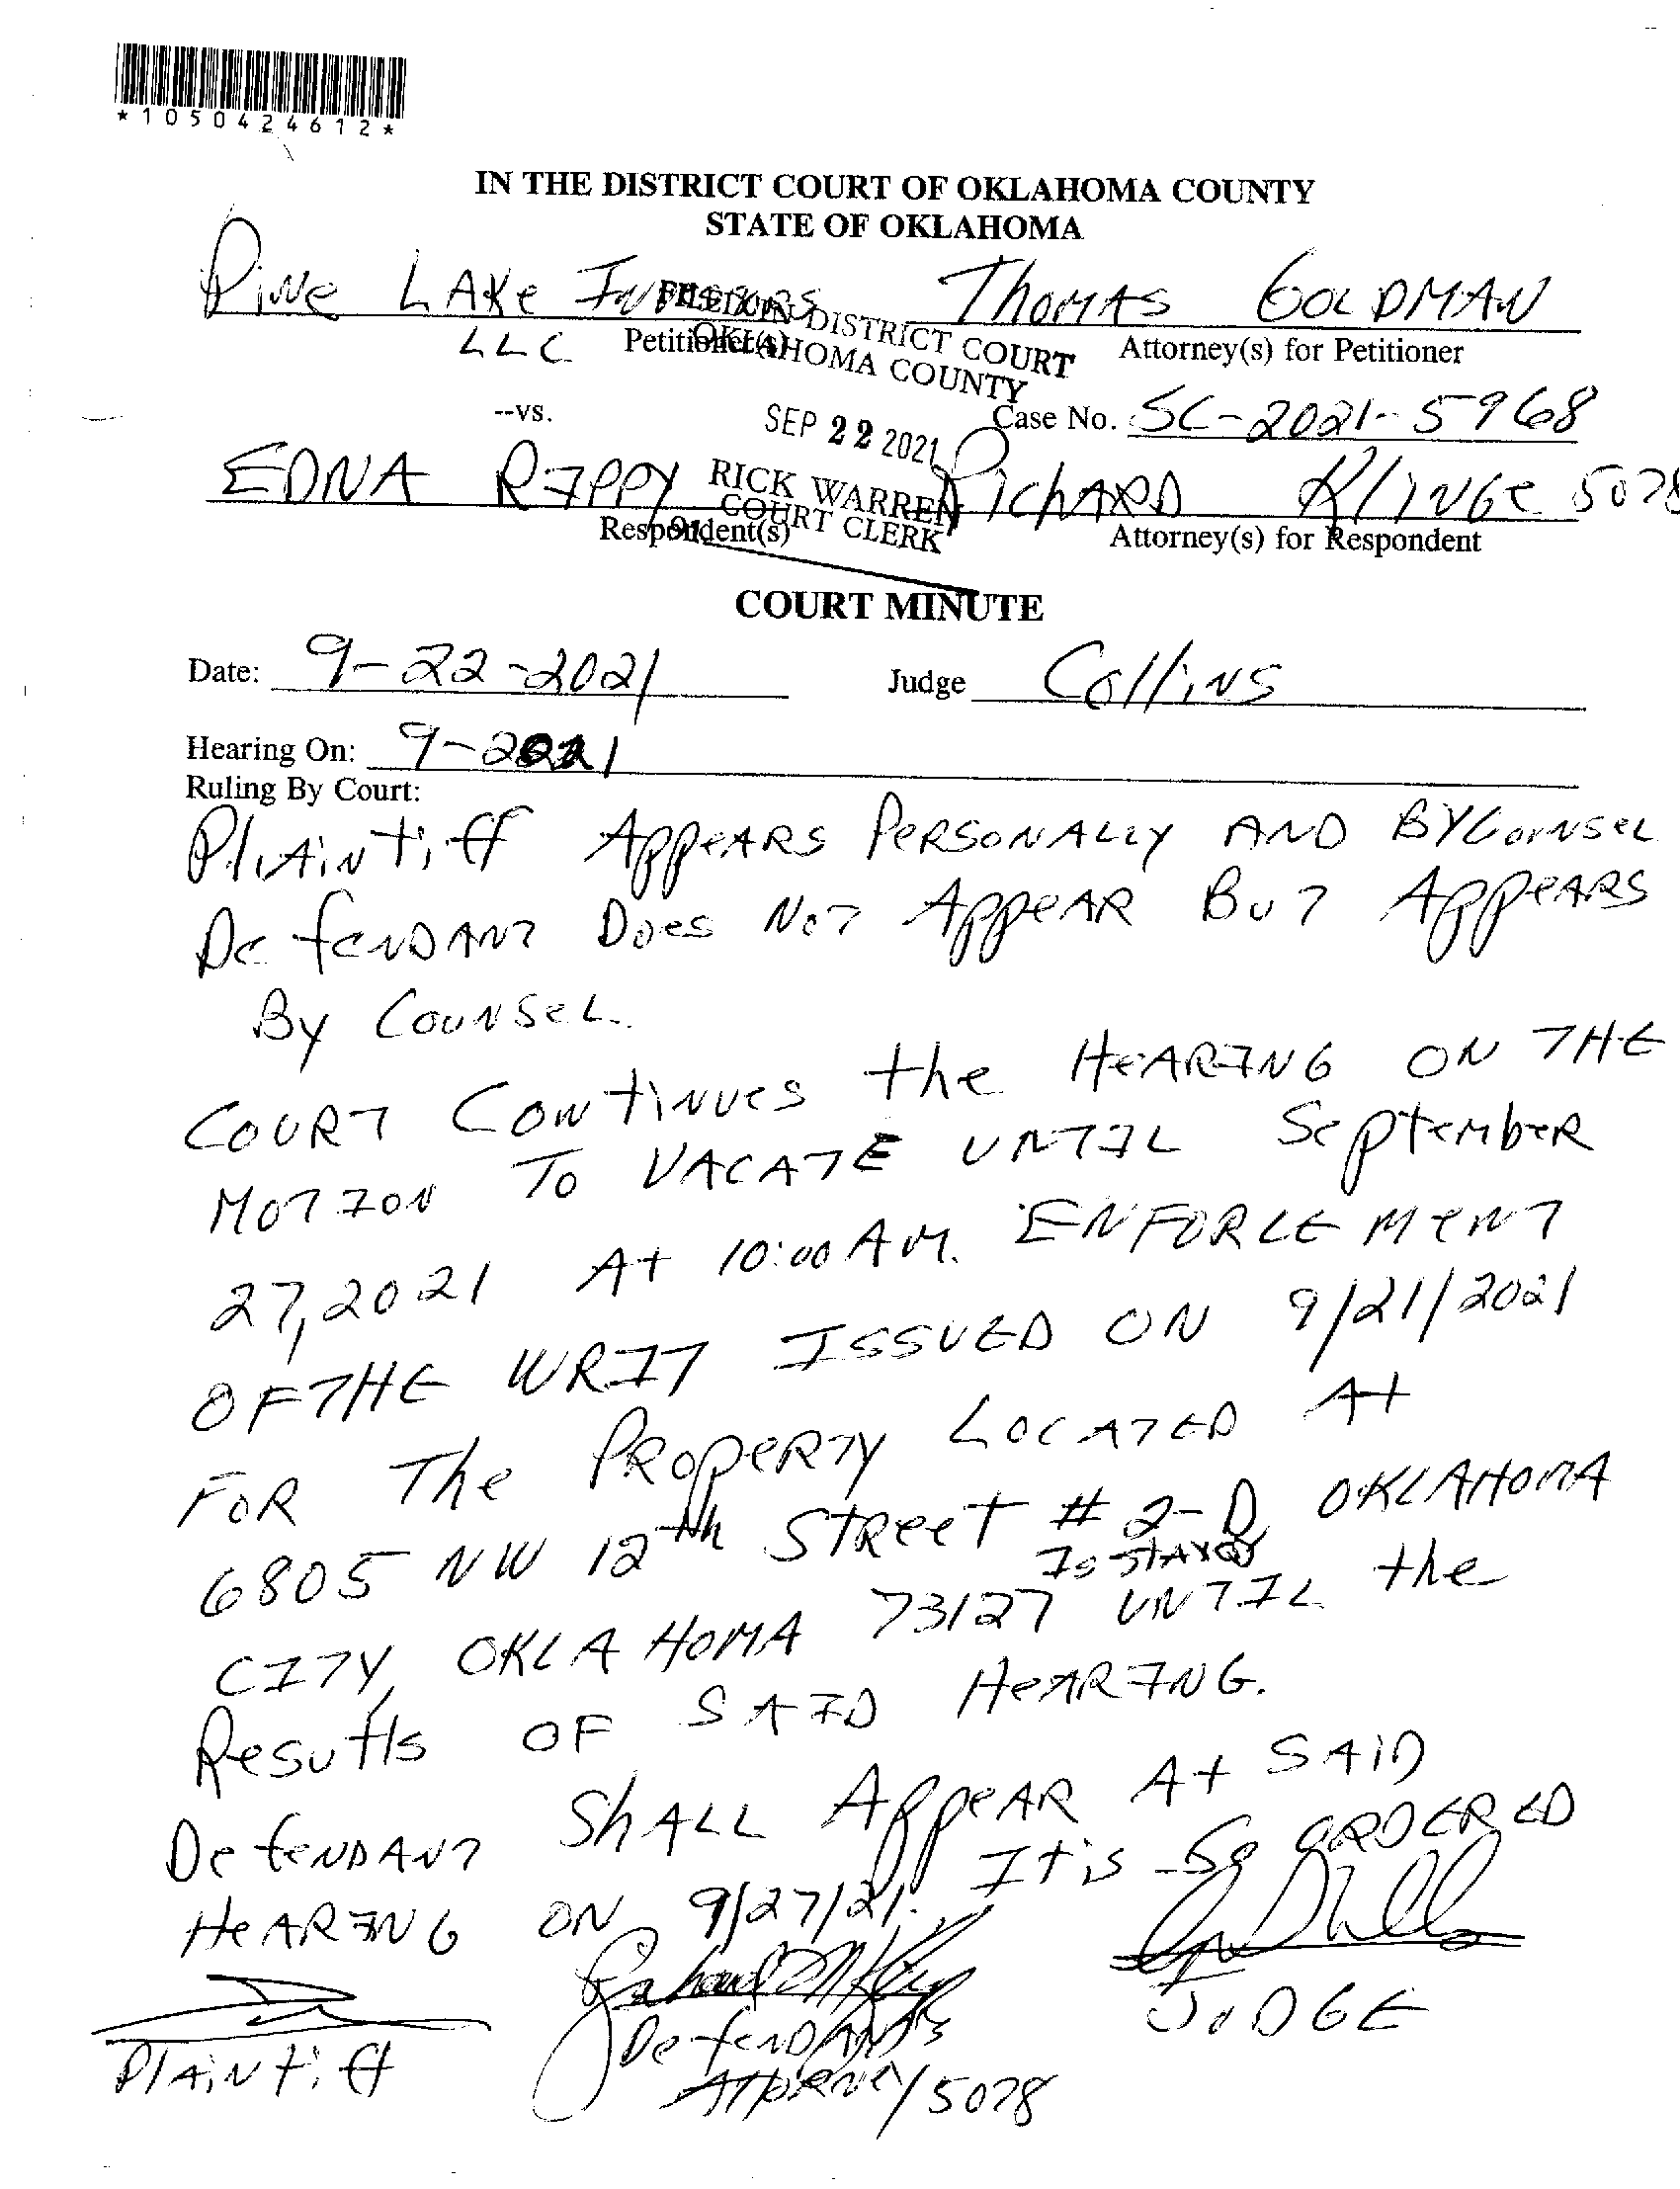 *1050424612*
IN THE DISTRICT COURT OF OKLAHOMA COUNTY
STATE OF OKLAHOMA
Pine Lake Investors Thomas Goldman
LLC Petitioner(s) Attorney(s) for Petitioner
FILED IN DISTRICT COURT
OKLAHOMA COUNTY
SEP 22 2021
RICK WARREN
COURT CLERK
--vs. Case No. SC-2021-5968
EDNA RIPPY Richard Klinge 5078
Respondent(s) Attorney(s) for Respondent
COURT MINUTE
Date: 9-22-2021 Judge Collins
Hearing On: 9-2021
Ruling By Court:
Plaintiff Appears Personally AND BY Counsel
Defendant Does Not Appear But Appears
By Counsel.
COURT Continues the HEARING ON THE
MOTION To VACATE UNTIL September
27, 2021 At 10:00 AM. ENFORCEMENT
OF THE WRIT ISSUED ON 9/21/2021
FOR The PROPERTY LOCATED At
6805 NW 12th STREET # 2-D, OKLAHOMA
CITY, OKLAHOMA 73127 Is Stayed UNTIL the
Resutls OF SAID HEARING.
Defendant Shall Appear At SAID
HEARING ON 9/27/21. It is So ORDERED
Plaintiff Defendant's JUDGE
Attorney 5078